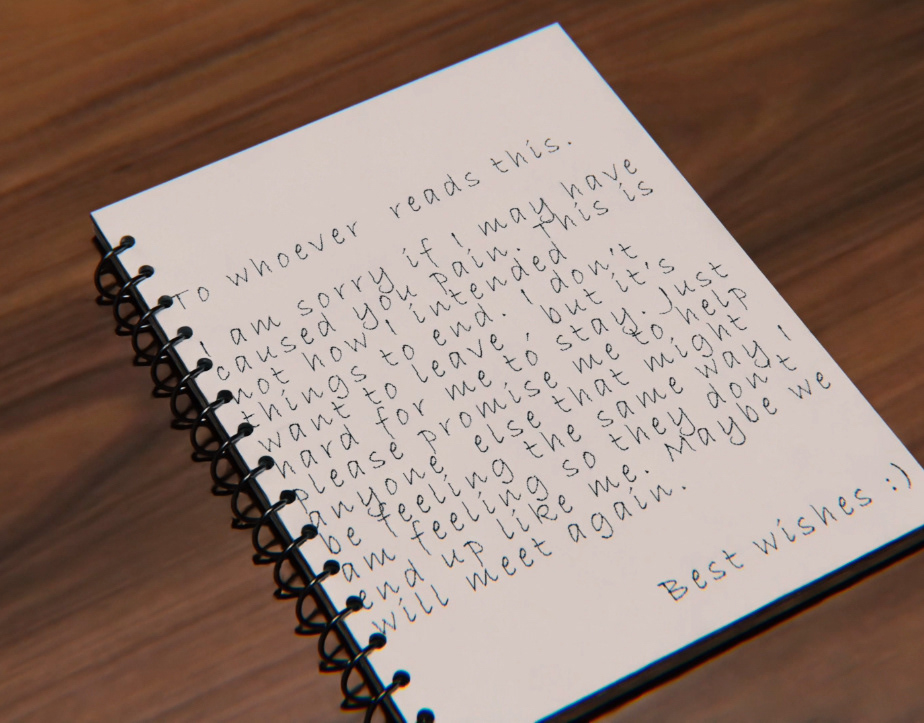 To whoever reads this.
I am sorry if I may have
caused you pain. This is
not how I intended
things to end. I don't
want to leave, but it's
hard for me to stay. Just
please promise me to help
anyone else that might
be feeling the same way I
am feeling so they don't
end up like me. Maybe we
will meet again.
Best wishes :)